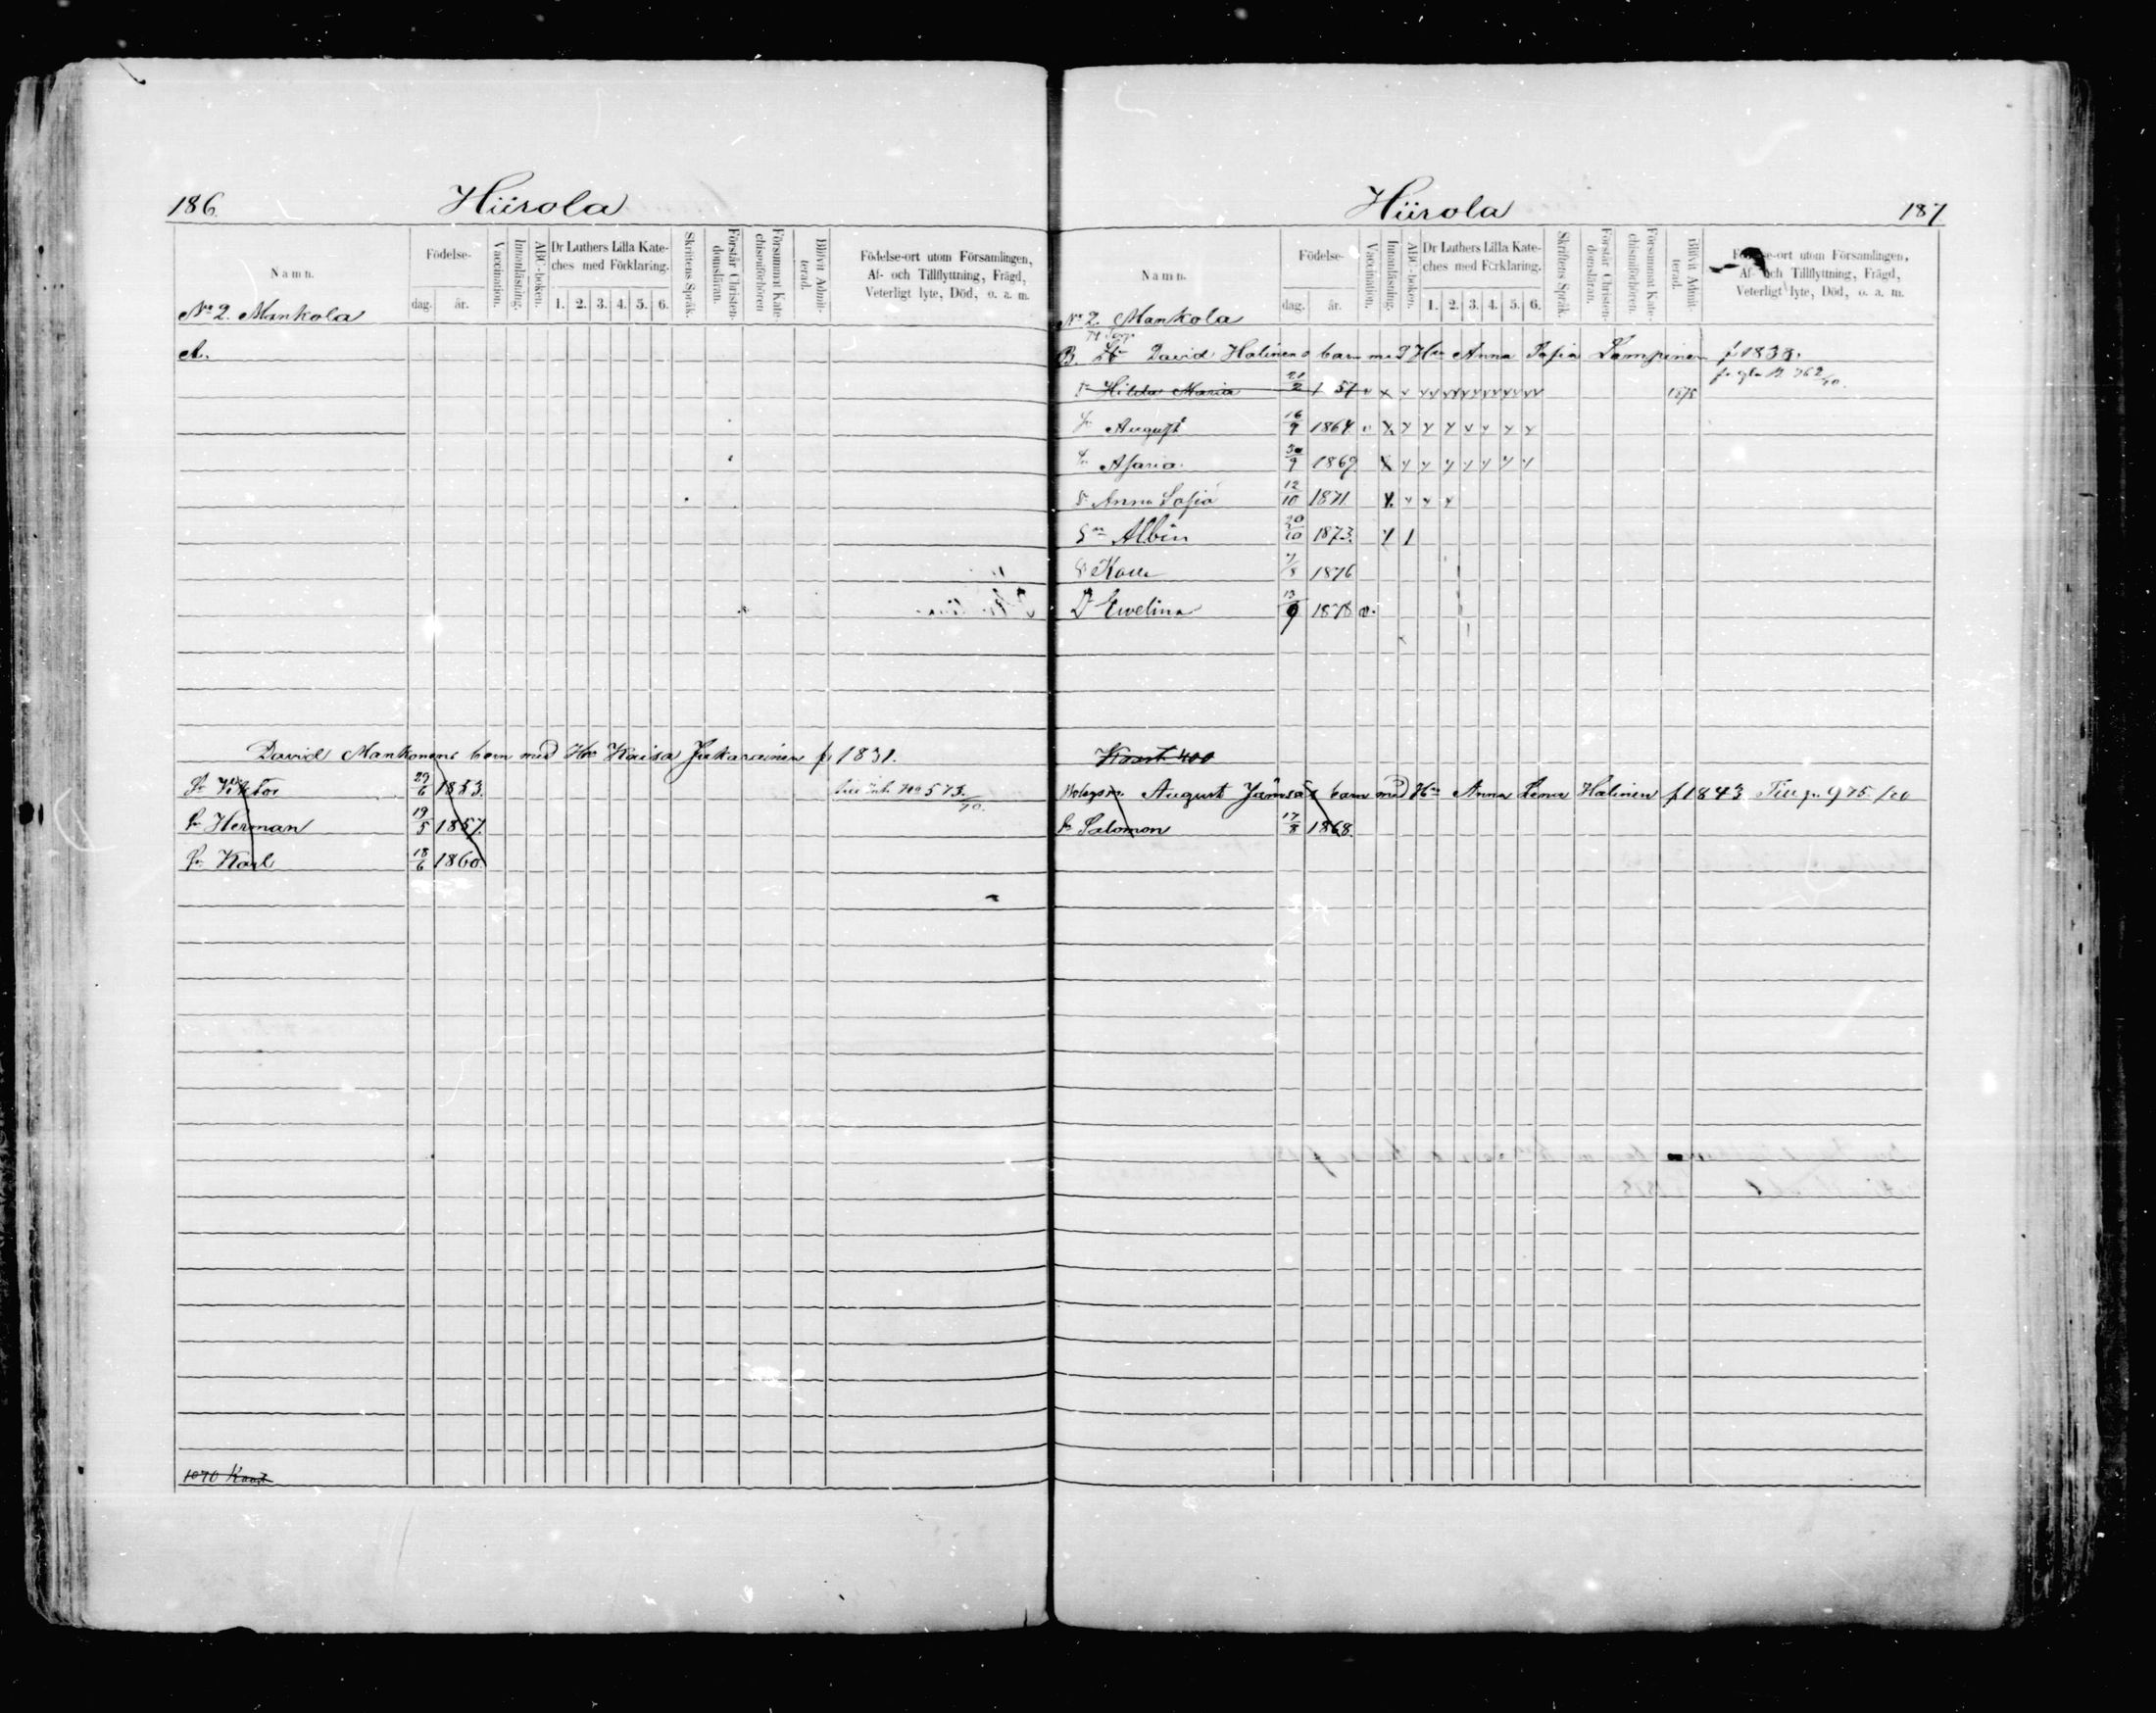 186. Hiirola
Namn. Födelse- dag. år. Vaccination. Innanläsning. ABC-boken. Dr Luthers Lilla Kateches med Förklaring. 1. 2. 3. 4. 5. 6. Skriftens Språk. Förstår Christendomsläran. Försummat Katechismiförhören Blifvit Admitterad. Födelse-ort utom Församlingen, Af- och Tillflyttning, Frägd, Veterligt lyte, Död, o. a. m.
No 2. Mankola
A.
David Mankonens barn med Hu Kaisa Jukarainen f. 1831.
Sn Viktor 29/6 1853. 573/70.
Sn Herman 19/5 1857.
Sn Karl 18/6 1860.
1070 Kaart
Hiirola 187
Namn. Födelse- dag. år. Vaccination. Innanläsning. ABC-boken. Dr Luthers Lilla Kateches med Förklaring. 1. 2. 3. 4. 5. 6. Skriftens Språk. Förstår Christendomsläran. Försummat Katechismiförhören. Blifvit Admitterad. Födelse-ort utom Församlingen, Af- och Tillflyttning, Frägd, Veterligt lyte, Död, o. a. m.
No 2. Mankola
B. David Halinens barn med Hu Anna Sofia Lampinen f 1833.
Dr Hilda Maria 21/2 57 v x x 1875 762/70.
Sn August 16/9 1864 v x
Sn Asaria. 30/9 1869 x
Dr Anna Sofia 12/10 1871. x
Sn Albin 20/10 1873.
1876
Dr Ewelina 13/9 1878 v.
Kaart 400
August Jämsäs barn med Hu Anna Lena Halinen f 1843 Till p. 975./70
Sn Salomon 17/8 1868.